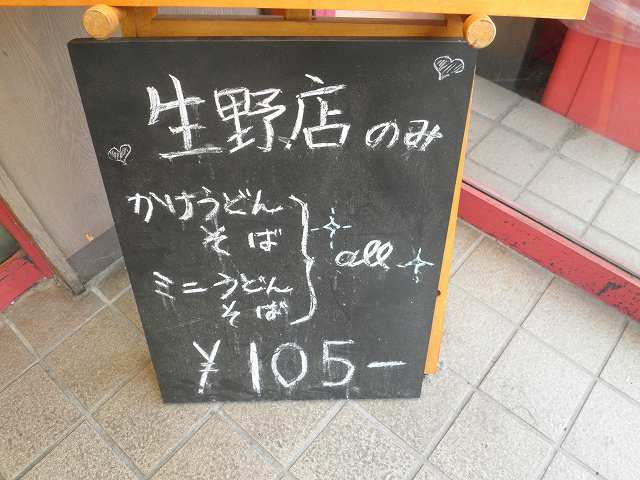 生野店のみ
かけうどん
そば
all
ミニうどん
そば
¥105-